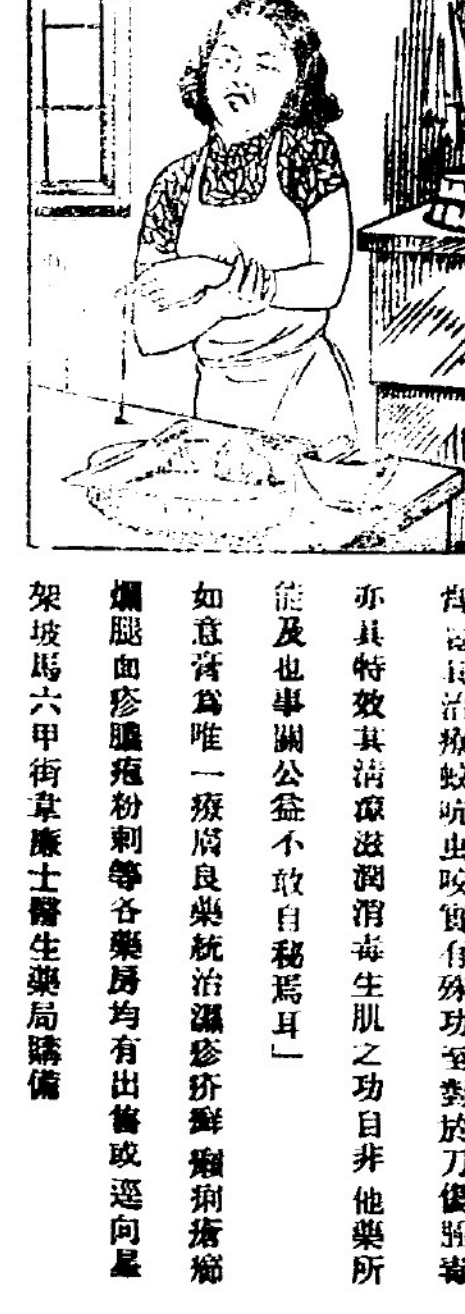 治療蚊吮虫咬實有殊功至對於刀傷
亦具特效其清凉滋潤消毒生肌之功自非他藥所
能及也事關公益不敢自秘焉耳」
如意膏爲唯一療膚良藥統治濕疹疥癬癩痢瘡癤
爛腿面疹膿疱粉刺等各藥房均有出售或逕向星
架坡馬六甲街韋廉士醫生藥局購備